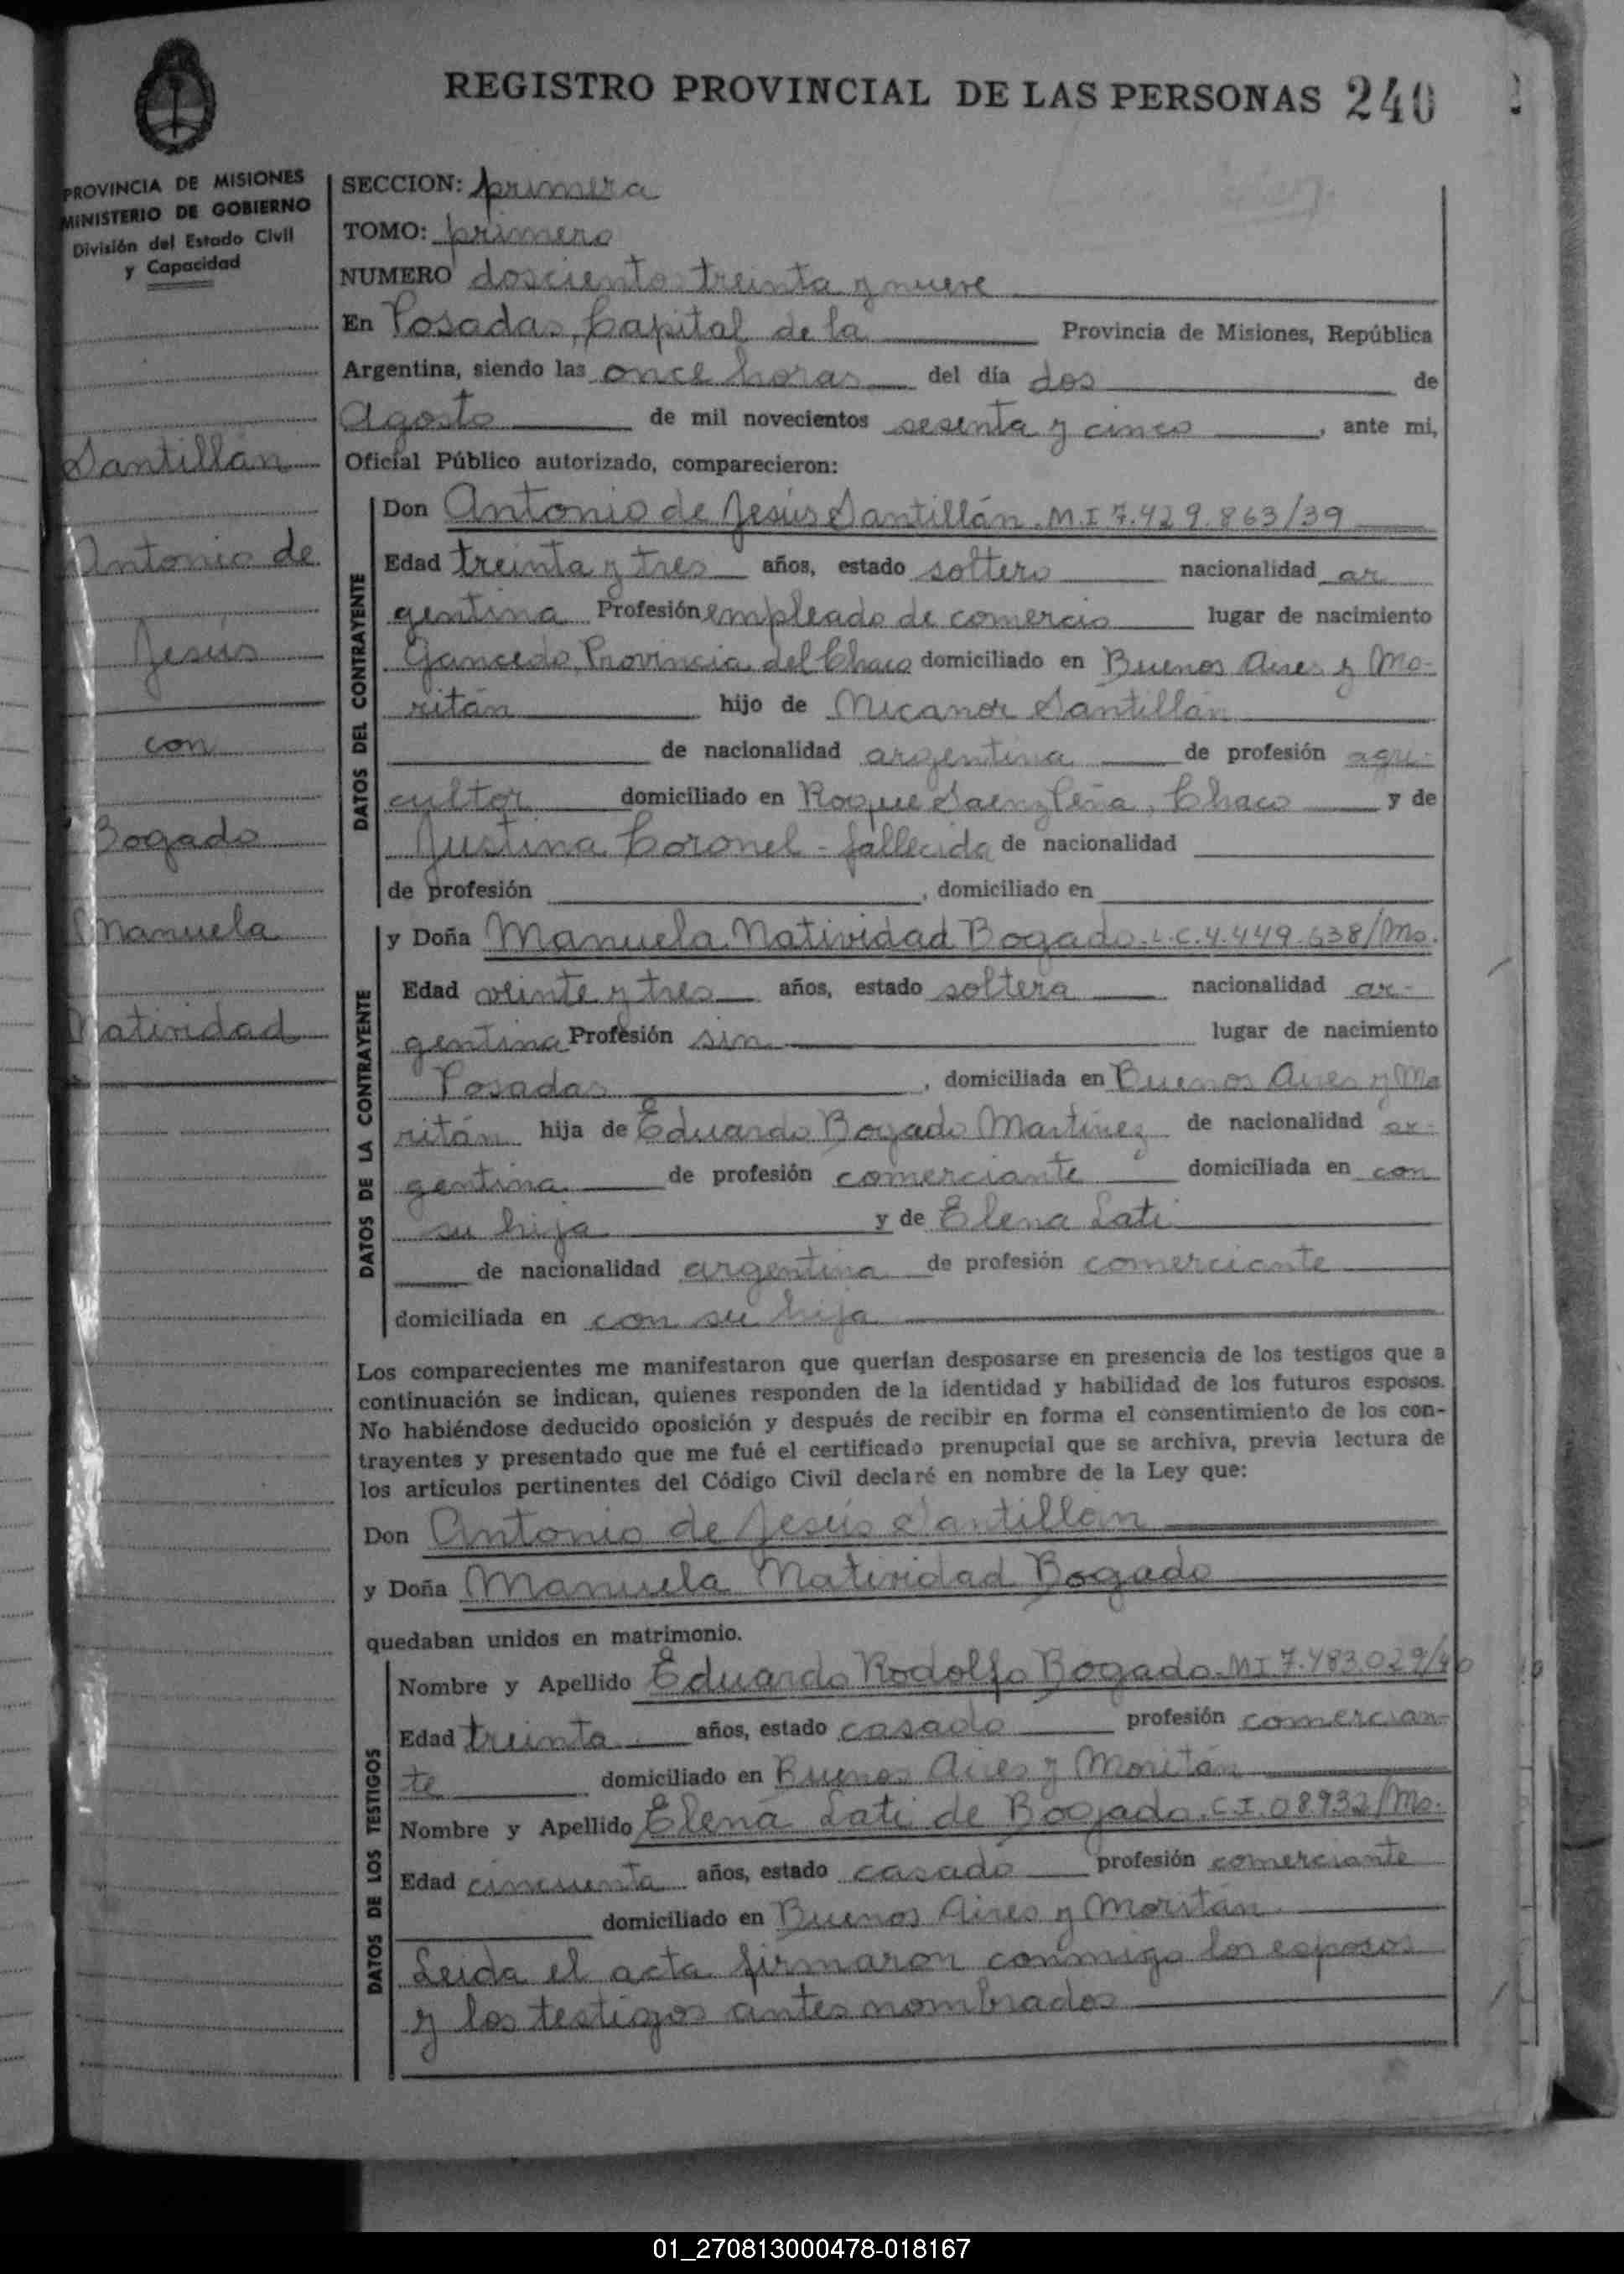 REGISTRO PROVINCIAL DE LAS PERSONAS 240
PROVINCIA DE MISIONES
MINISTERIO DE GOBIERNO
División del Estado Civil
y Capacidad
Santillán
Antonio de
Jesús
con
Bogado
Manuela
Natividad
SECCION: primera
TOMO: primero
NUMERO doscientos treinta y nueve
En Posadas, Capital de la Provincia de Misiones, República
Argentina, siendo las once horas del día dos de
Agosto de mil novecientos sesenta y cinco, ante mi,
Oficial Público autorizado, comparecieron:
DATOS DEL CONTRAYENTE
Don Antonio de Jesús Santillán. M.I 7.429.863/39
Edad treinta y tres años, estado soltero nacionalidad ar
gentina Profesión empleado de comercio lugar de nacimiento
Gancedo, Provincia del Chaco domiciliado en Buenos Aires y Mo-
ritán hijo de Nicanor Santillán
de nacionalidad argentina de profesión agri-
cultor domiciliado en Roque Saenz Peña, Chaco y de
Justina Coronel - fallecida de nacionalidad
de profesión , domiciliado en
DATOS DE LA CONTRAYENTE
y Doña Manuela Natividad Bogado. L.C. 4.449.638/Mo.
Edad veinte y tres años, estado soltera nacionalidad ar-
gentina Profesión sin lugar de nacimiento
Posadas , domiciliada en Buenos Aires y Mo
ritán hija de Eduardo Bogado Martínez de nacionalidad ar-
gentina de profesión comerciante domiciliada en con
su hija y de Elena Lati
de nacionalidad argentina de profesión comerciante
domiciliada en con su hija
Los comparecientes me manifestaron que querían desposarse en presencia de los testigos que a
continuación se indican, quienes responden de la identidad y habilidad de los futuros esposos.
No habiéndose deducido oposición y después de recibir en forma el consentimiento de los con-
trayentes y presentado que me fué el certificado prenupcial que se archiva, previa lectura de
los artículos pertinentes del Código Civil declaré en nombre de la Ley que:
Don Antonio de Jesús Santillán
y Doña Manuela Natividad Bogado
quedaban unidos en matrimonio.
DATOS DE LOS TESTIGOS
Nombre y Apellido Eduardo Rodolfo Bogado. M.I. 7.483.029/46
Edad treinta años, estado casado profesión comercian-
te domiciliado en Buenos Aires y Moritán
Nombre y Apellido Elena Lati de Bogado. C.I. 08932/Mo.
Edad cincuenta años, estado casado profesión comerciante
domiciliado en Buenos Aires y Moritán
Leida el acta firmaron conmigo los esposos
y los testigos antes nombrados
01_270813000478-018167